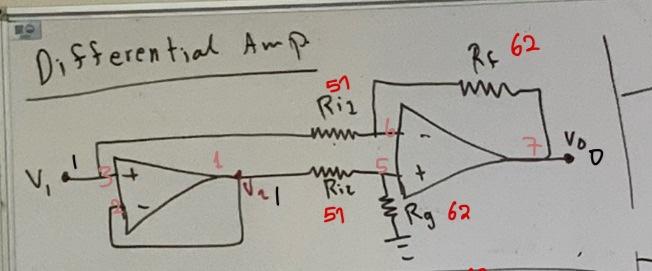 Differential Amp
Rf 62
51
Ri2
6 -
7 Vo 0
V1 1 3 +
1
V2 1
5 +
Ri2
51
2 -
Rg 62